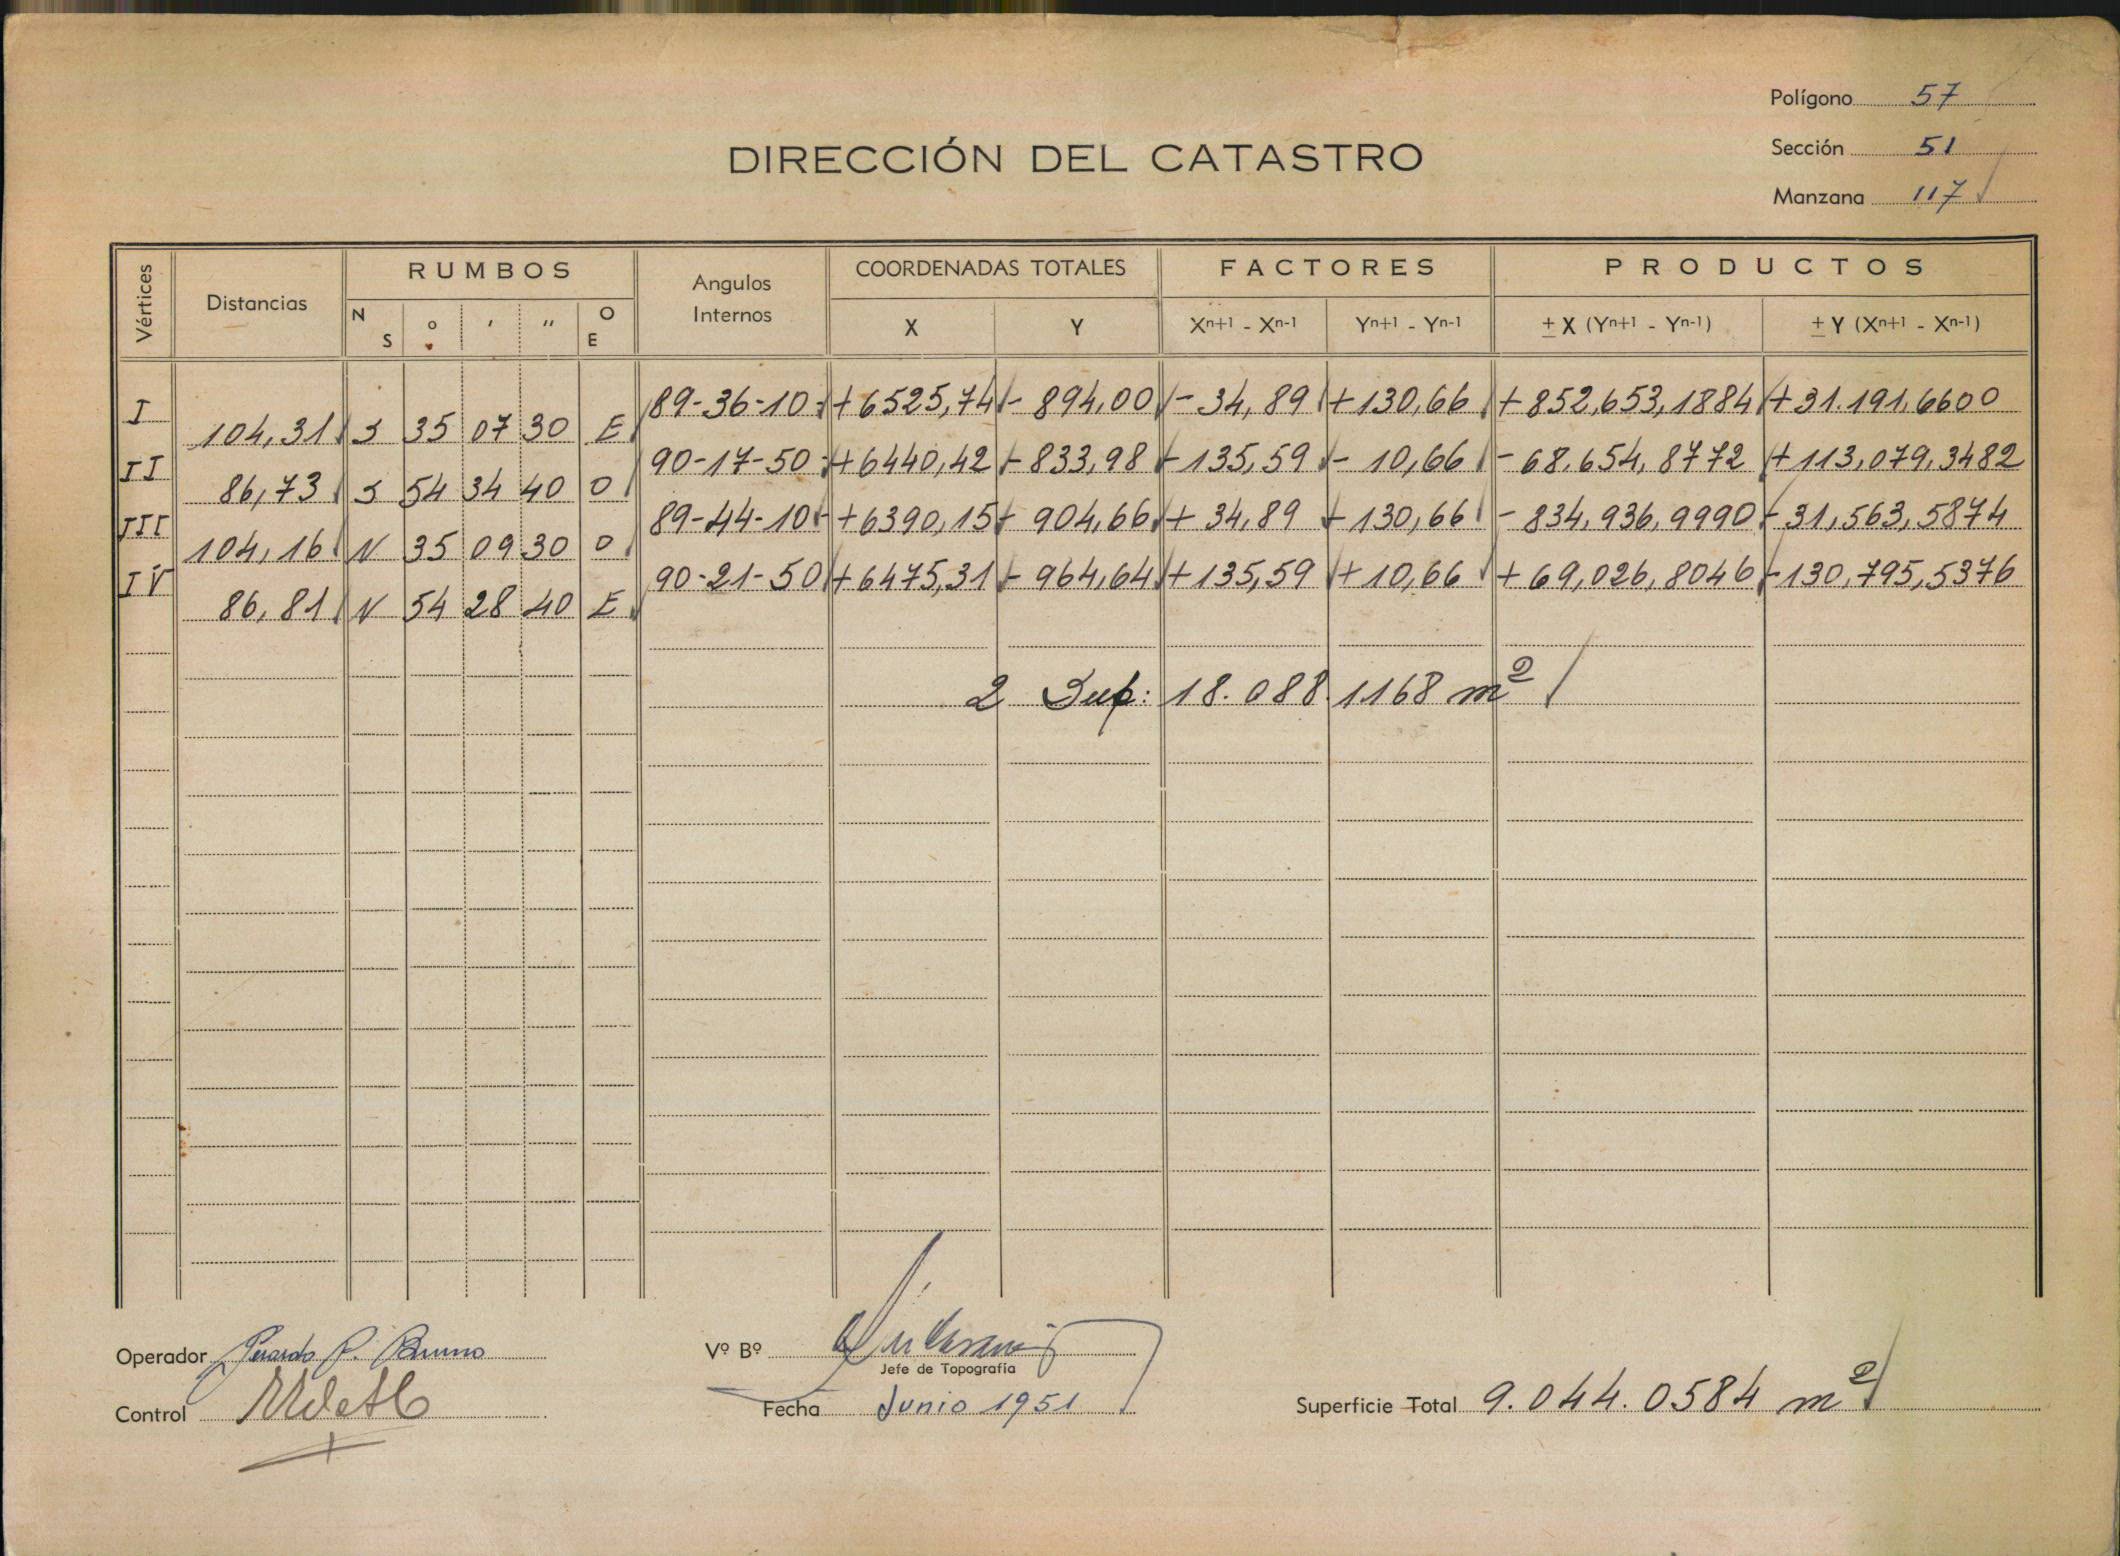 Polígono 57
DIRECCIÓN DEL CATASTRO
Sección 51
Manzana 117
Vértices Distancias RUMBOS Angulos Internos COORDENADAS TOTALES FACTORES PRODUCTOS
N S º ' '' O E X Y Xn+1 - Xn-1 Yn+1 - Yn-1 ± X (Yn+1 - Yn-1) ± Y (Xn+1 - Xn-1)
I 89-36-10 +6525,74 - 894,00 - 34,89 +130,66 +852,653,1884 +31.191,6600
104,31 S 35 07 30 E
II 90-17-50 +6440,42 - 833,98 - 135,59 - 10,66 -68.654,8772 +113,079,3482
86,73 S 54 34 40 O
III 89-44-10 +6390,15 - 904,66 + 34,89 - 130,66 - 834,936,9990 - 31,563,5874
104,16 N 35 09 30 O
IV 90-21-50 +6475,31 - 964,64 +135,59 + 10,66 + 69,026,8046 -130,795,5376
86,81 N 54 28 40 E
2 Sup: 18.088.1168 m²
Operador Gerardo P. Bruno
Vº Bº
Jefe de Topografía
Control
Fecha Junio 1951
Superficie Total 9.044.0584 m²